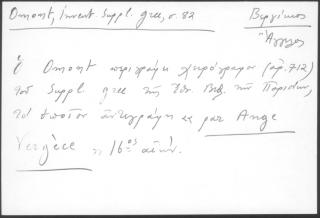 Omont, Invent Suppl. grec, σ. 82
Βεργίκιος
Ἄγγελος
Ὁ Omont περιγράφει χειρόγραφον (ἀρ. 712)
τοῦ Suppl. grec τῆς Ἐθν. Βιβλ. τῶν Παρισίων,
τὸ ὁποῖον ἀντεγράφη ὡς par Ange
Vergèce τὸν 16ον αἰῶνα.